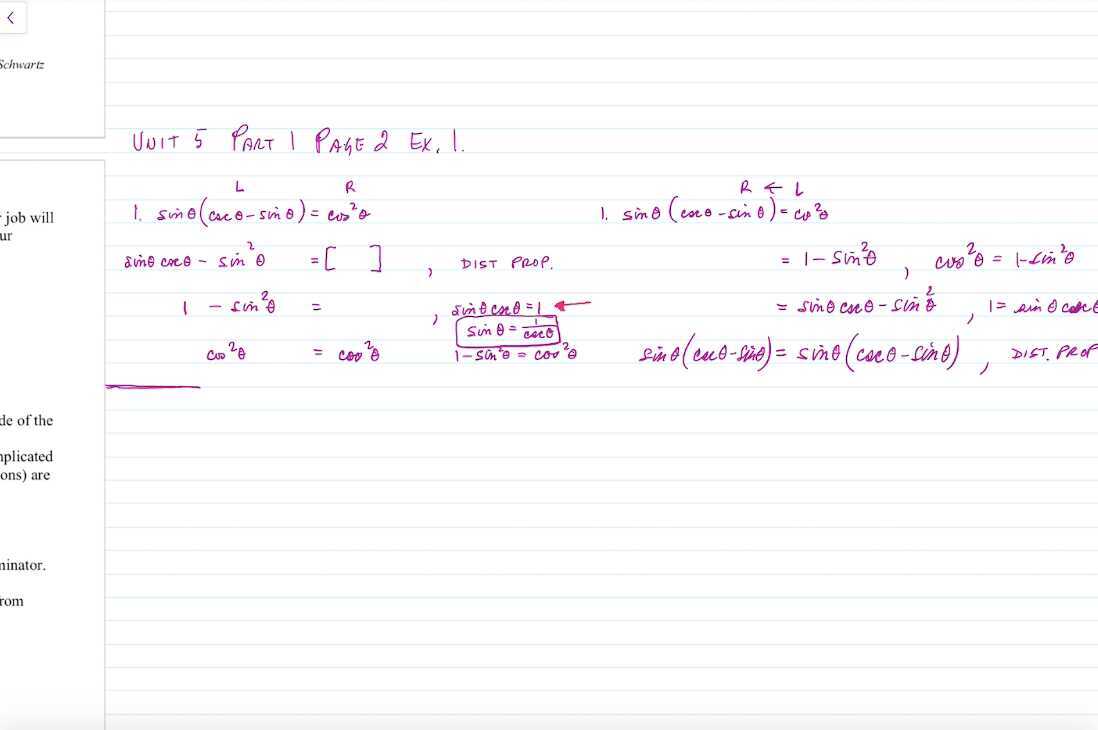 <
Schwartz
job will
ur
de of the
nplicated
ons) are
ninator.
rom
UNIT 5 PART 1 PAGE 2 EX. 1.
L R
1. sinθ(cscθ-sinθ) = cos²θ
sinθ cscθ - sin²θ = [ ] , DIST PROP.
1 - sin²θ = , sinθ cscθ = 1 ←
sinθ = 1/cscθ
cos²θ = cos²θ 1-sin²θ = cos²θ
R ← L
1. sinθ(cscθ-sinθ) = cos²θ
= 1-sin²θ , cos²θ = 1-sin²θ
= sinθ cscθ - sin²θ , 1 = sinθ cscθ
sinθ(cscθ-sinθ) = sinθ(cscθ-sinθ) , DIST. PROP